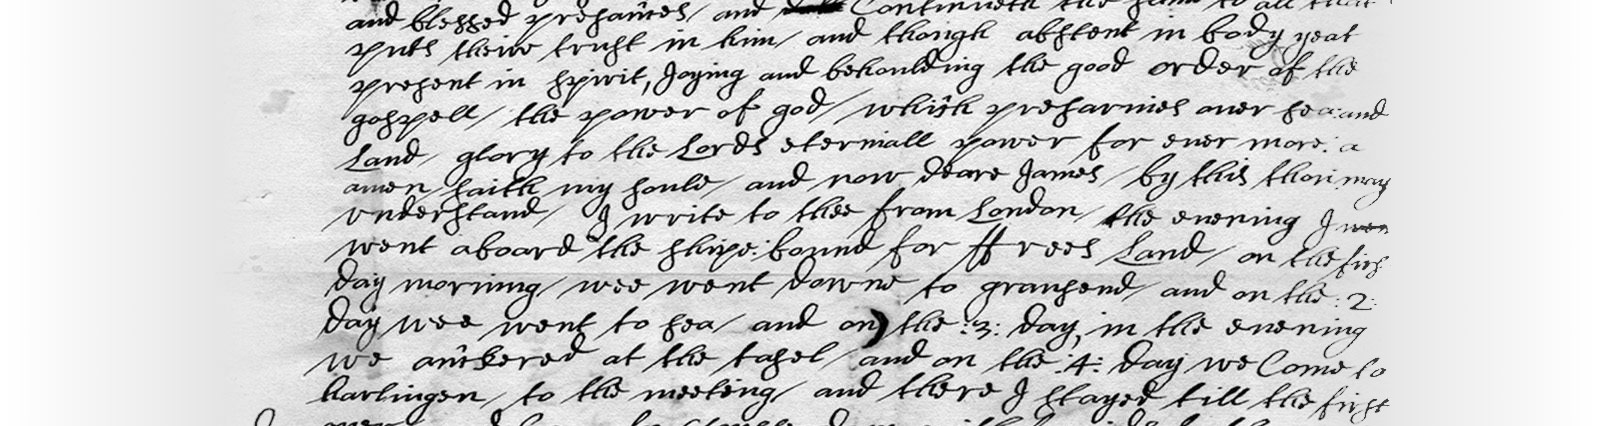 and blessed presances, and Continueth the same to all that
puts theire trust in him, and though abstent in body yeat
present in spirit, Joying and behoulding the good order of the
gospell, the power of god, which preservies over sea: and
Land, glory to the Lords eternall power for ever more: a
amen saith my soule, and now deare James, by this thou may
understand, I write to thee from London, the evening I
went aboard the shipe: bound for ffrees Land, on the firs
day morning, wee went downe to gransend, and on the :2:
day wee went to sea, and on the :3: day, in the evening
we anckered at the tasel, and on the :4: day we Come to
harlingen, to the meeting, and there I stayed till the first